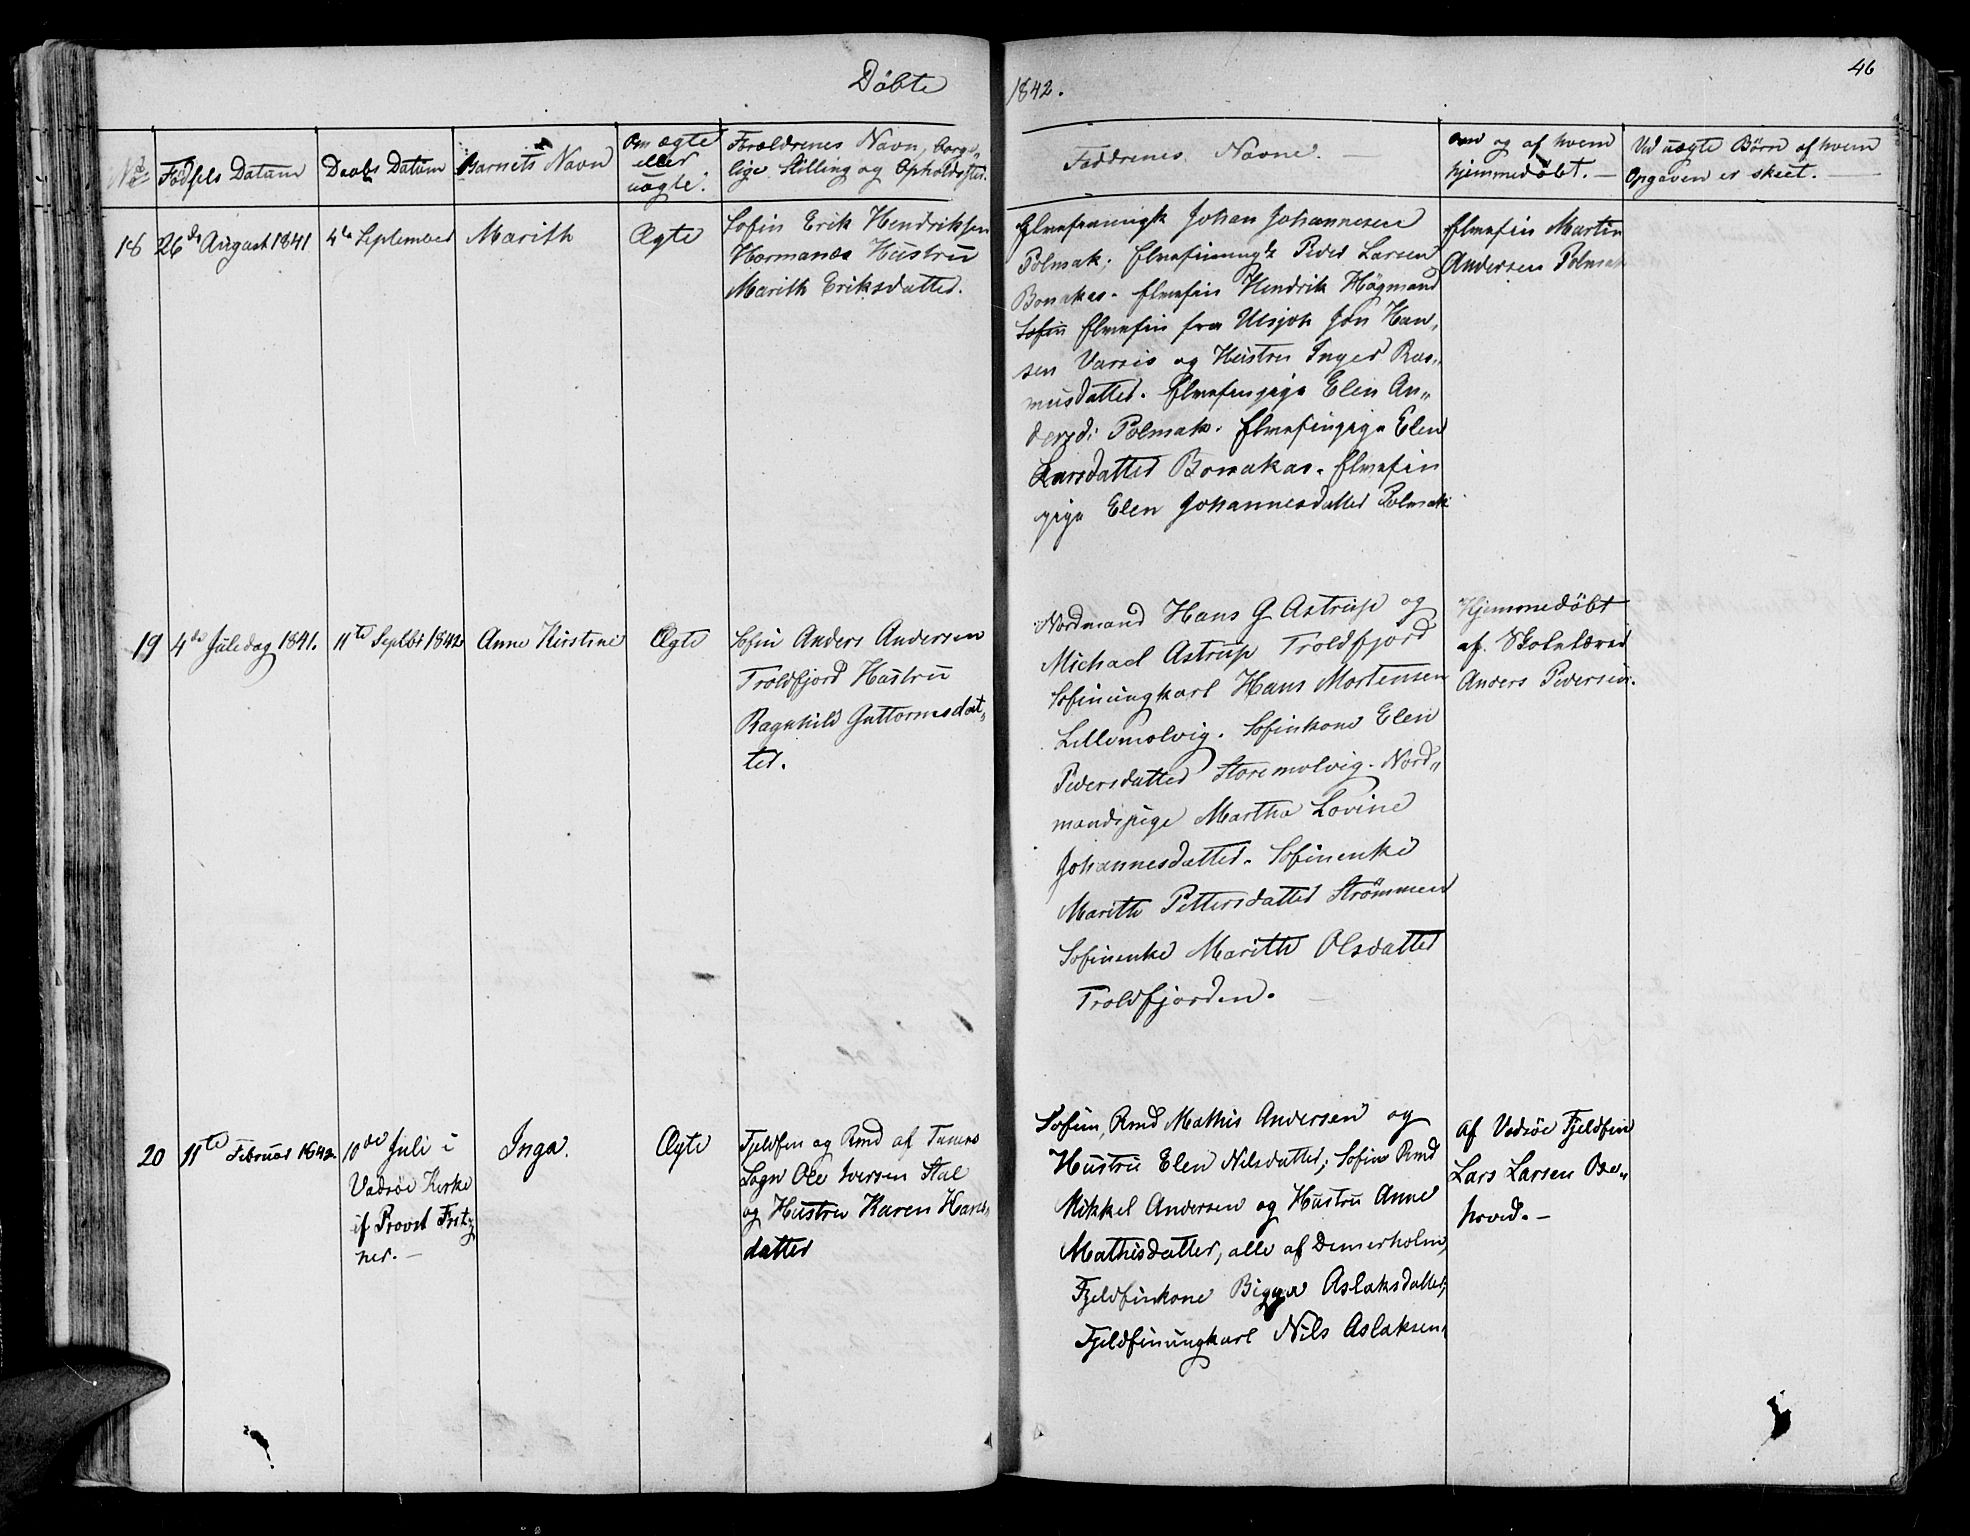 Döbte
1842.
46
No
Födsels Datum
Daabs Datum
Barnets Navn
Om ægte
eller
uægte.
Forældrenes Navn, borge„
lige Stilling og Opholdssted.
Faddrenes Navne. —
om og af hvem
hjemmedöbt. —
Ved uægte Börn af hvem
Opgaven er skeet. —
18
26de August 1841
4de September
Marith
Ægte
Söfin Erik Hendriksen
Hermanæs Hustru
Marith Eriksdatter.
Elvefinungk Johan Johannesen
Polmak; Elvefinungk Peder Larsen
Bonakas. Elvefin Hendrik Högmand
Elvefin fra Utsjok Jon Han„
sen Varsis og Hustru Inger Ras„
musdatter. Elvefinpige Elen An„
dersd: Polmak. Elvefinpige Elen
Larsdatter Bonakas. Elvefin
pige Elen Johannesdatter Polmak
Elvefin Martin
Andersen Polmak
19
4de Juledag 1841.
11te Septbr 1842
Anne Kirstine
Ægte
Söfin Anders Andersen
Troldfjord Hustru
Ragnhild Guttormsdat„
ter.
Nordmand Hans G Astrup og
Michael Astrup Troldfjord
Söfinungkarl Hans Mortensen
Lillemolvig. Söfinkone Elen
Pedersdatter Storemolvig. Nord„
mandspige Martha Lovine
Johannesdatter. Söfinenke
Marith Pettersdatter Strömmen
Söfinenke Marith Olsdatter
Troldfjorden.
Hjemmedöbt
af Skolelærer
Anders Pedersen.
20
11te Februar 1842.
10de Juli i
Vadsöe Kirke
af Provst Fritz
ner. —
Inga.
Ægte
Fjeldfin og Rmd af Tanens
Sogn Ole Iversen Stal
og Hustru Karen Hans„
datter
Söfin, Rmd Mathis Andersen og
Hustru Elen Nilsdatter; Söfin Rmd
Mikkel Andersen og Hustru Anne
Mathisdatter, alle af Demerholm,
Fjeldfinkone Bigga Aslaksdatter,
Fjeldfinungkarl Nils Aslaksen
Af Vadsöe Fjeldfin
Lars Larsen Oxe„
hoved. —